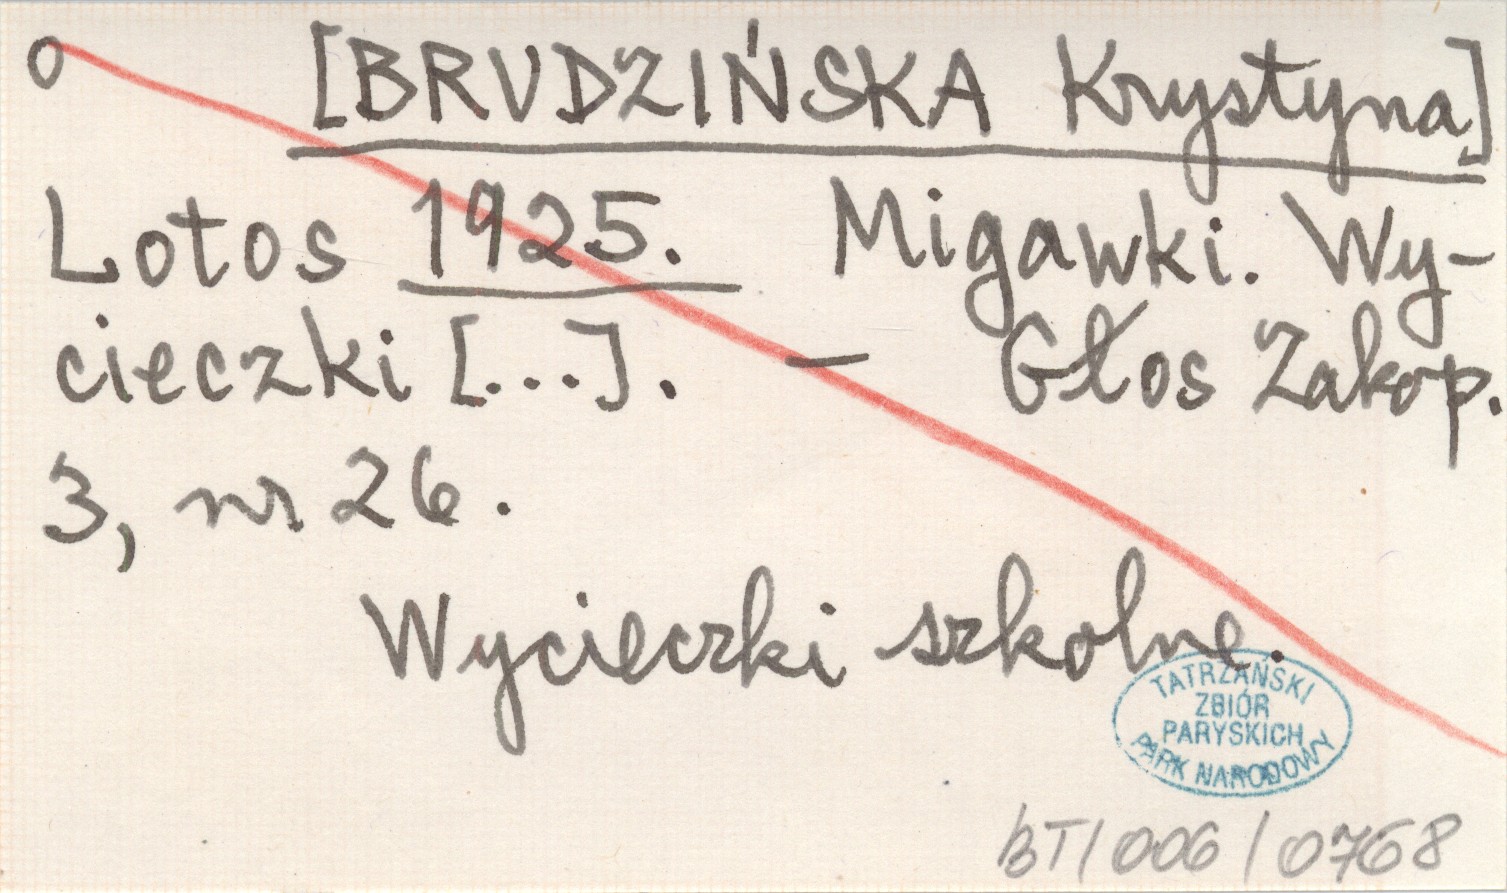 o [BRUDZIŃSKA Krystyna]
Lotos 1925. Migawki. Wy-
cieczki [...]. — Głos Zakop.
3, nr 26.
Wycieczki szkolne.
TATRZAŃSKI
ZBIÓR
PARYSKICH
PARK NARODOWY
BT/006/0768